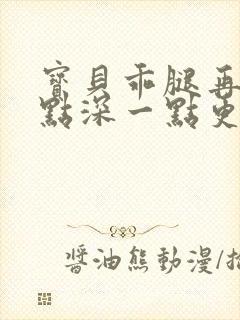 寶貝乖腿再
點深一點吏
醬油熊動漫/拍